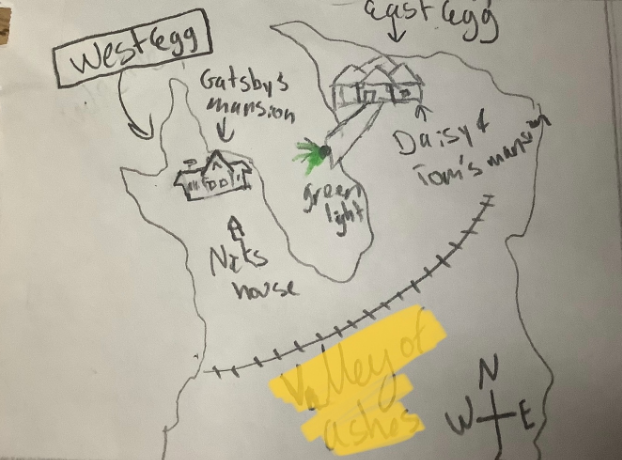 West Egg
East Egg
Gatsby's
mansion
Daisy &
Tom's mansion
green
light
Nick's
house
Valley of
ashes
N
W E